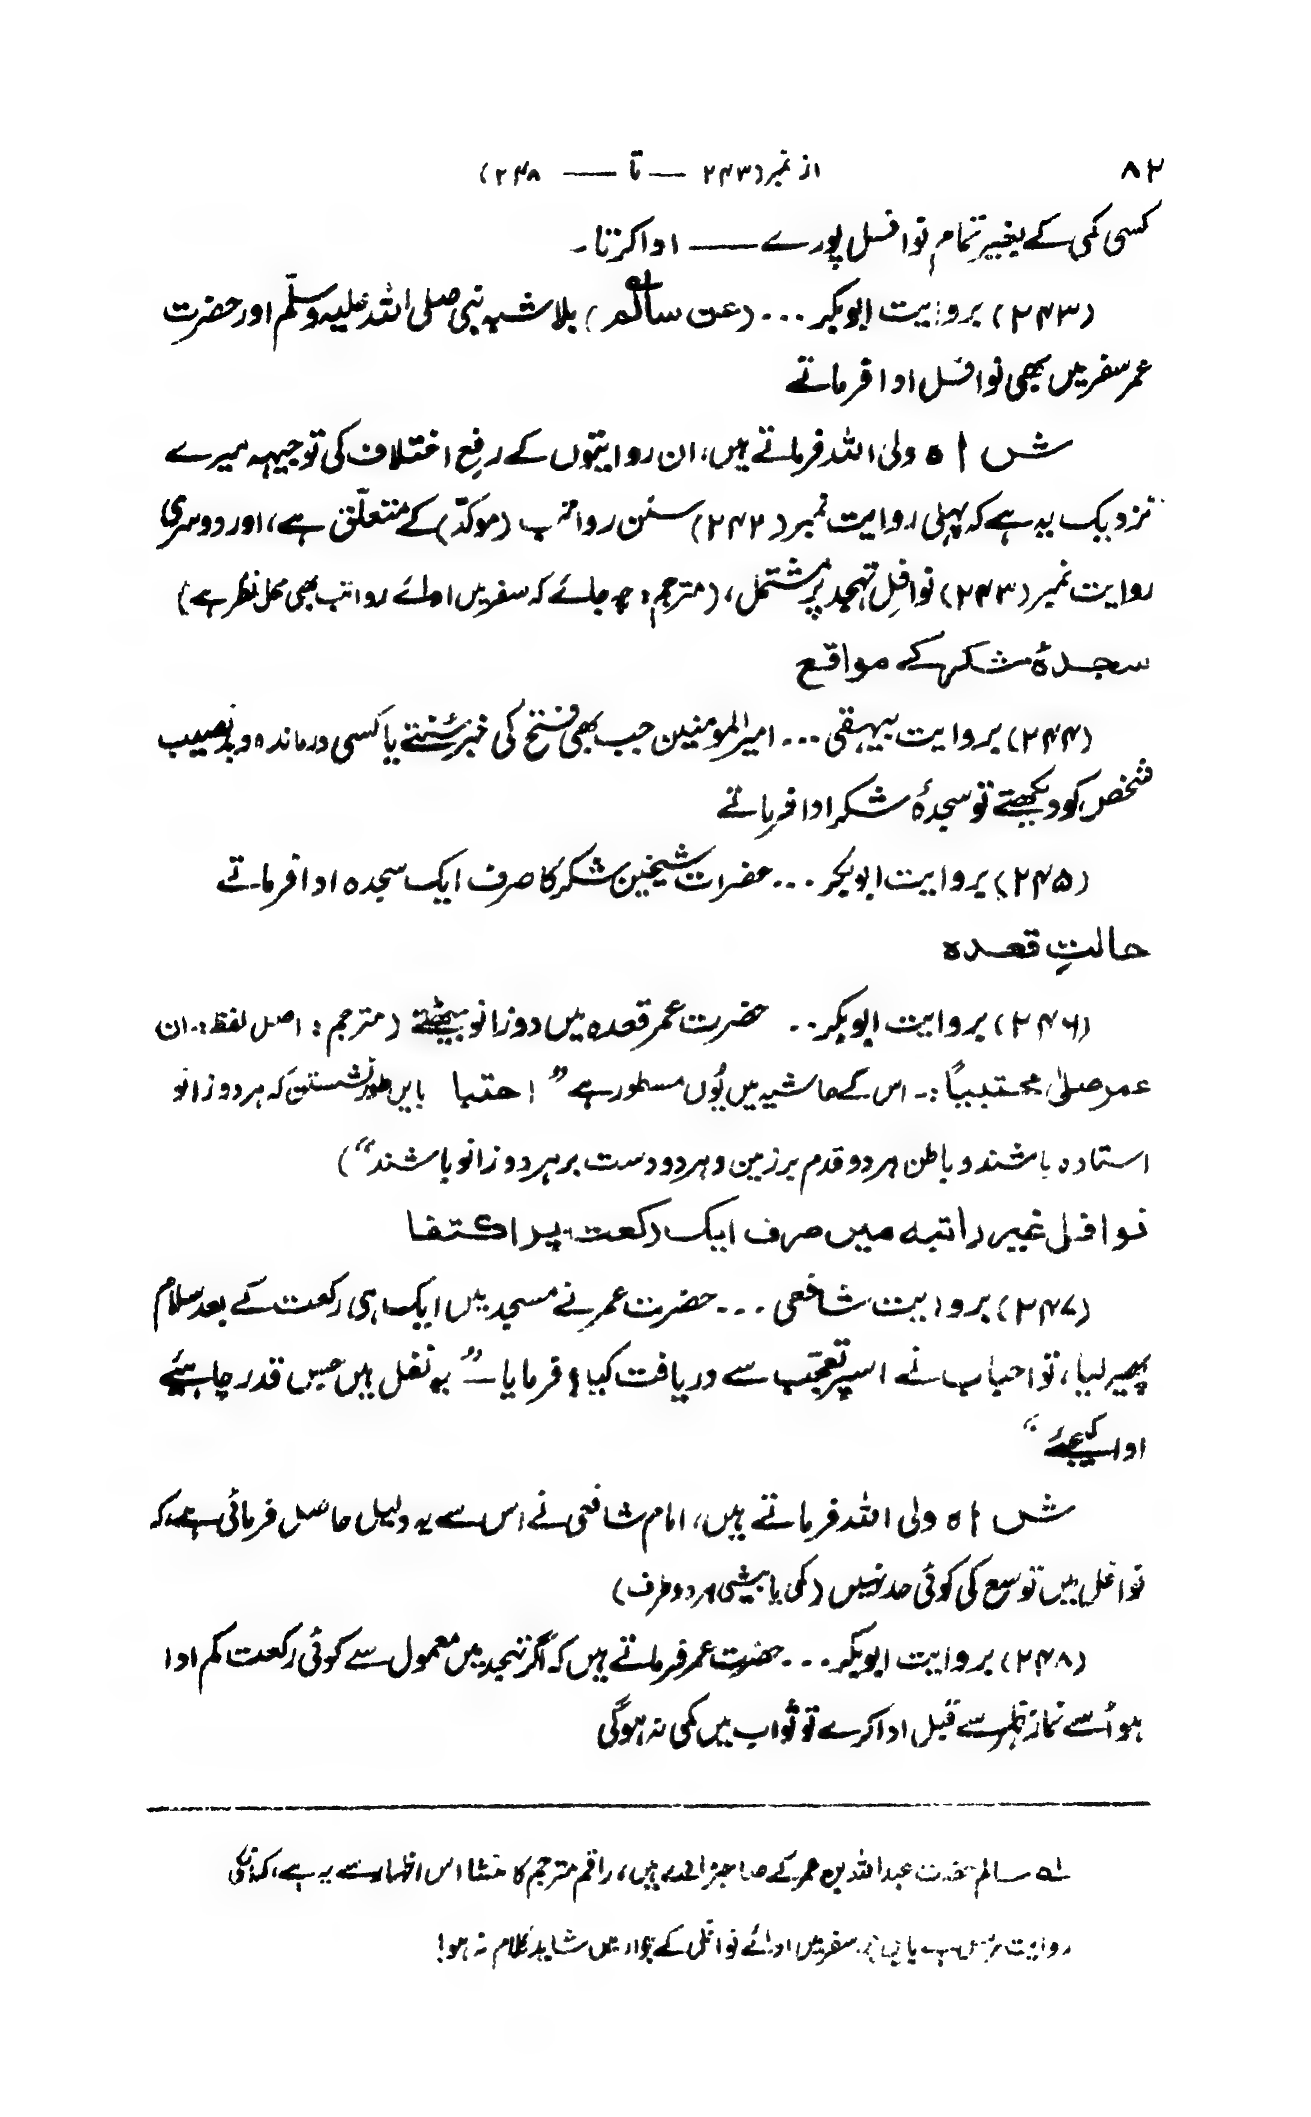 ۸۲
از نمبر (۲۴۳ — تا — ۲۴۸)
کسی کمی کے بغیر تمام نوافل پورے — ادا کرتا۔
(۲۴۳) بروایت ابوبکر ... (عن سالمؒ) بلا شبہ نبی صلی اللہ علیہ وسلّم اور حضرت
عمر سفر میں بھی نوافل ادا فرماتے
شاہ ولی اللہ فرماتے ہیں، ان روایتوں کے رفع اختلاف کی توجیہہ میرے
نزدیک یہ ہے کہ پہلی روایت نمبر (۲۴۲) سنن رواتب (موکدّ) کے متعلّق ہے، اور دوسری
روایت نمبر (۲۴۳) نوافلِ تہجد پر مشتمل، (مترجم: چہ جائے کہ سفر میں ادائے رواتب بھی محل نظر ہے)
سجدۂ شکر کے مواقع
(۲۴۴) بروایت بیہقی ... امیر المومنین جب بھی فتح کی خبر سُنتے یا کسی درماندہ و بدنصیب
شخص کو دیکھتے تو سجدۂ شکر ادا فرماتے
(۲۴۵) بروایت ابوبکر ... حضرات شیخین شکر کا صرف ایک سجدہ ادا فرماتے
حالتِ قعدہ
(۲۴۶) بروایت ابوبکر .. حضرت عمر قعدہ میں دوزانو بیٹھتے (مترجم: اصل لفظ:۔ ان
عمر صلیٰ محتبیاً :۔ اس کے حاشیہ میں یُوں مسطور ہے " احتبا بایں طور نشستن کہ ہر دو زانو
استادہ باشند و باطن ہر دو قدم بر زمین و ہر دو دست بر ہر دو زانو باشند")
نوافل غیر راتبہ میں صرف ایک رکعت پر اکتفا
(۲۴۷) بروایت شافعی ... حضرت عمر نے مسجد میں ایک ہی رکعت کے بعد سلام
پھیر لیا، تو احباب نے اسپر تعجّب سے دریافت کیا؛ فرمایا — " یہ نفل ہیں جس قدر چاہیئے
ادا کیجئے "
شاہ ولی اللہ فرماتے ہیں، امام شافعی نے اس سے یہ دلیل حاصل فرمائی ہے، کہ
نوافل میں توسع کی کوئی حد نہیں (کمی یا بیشی ہر دو طرف)
(۲۴۸) بروایت ابوبکر ... حضرت عمر فرماتے ہیں کہ اگر تہجد میں معمول سے کوئی رکعت کم ادا
ہو اُسے نماز ظہر سے قبل ادا کرے تو ثواب میں کمی نہ ہوگی
لہ سالم حضرت عبد اللہ بن عمر کے صاحبزادے ہیں، راقم مترجم کا منشا اس اظہار سے یہ ہے، کہ انکی
روایت سفر میں ادائے نوافل کے جواز میں شاید کلام نہ ہو!